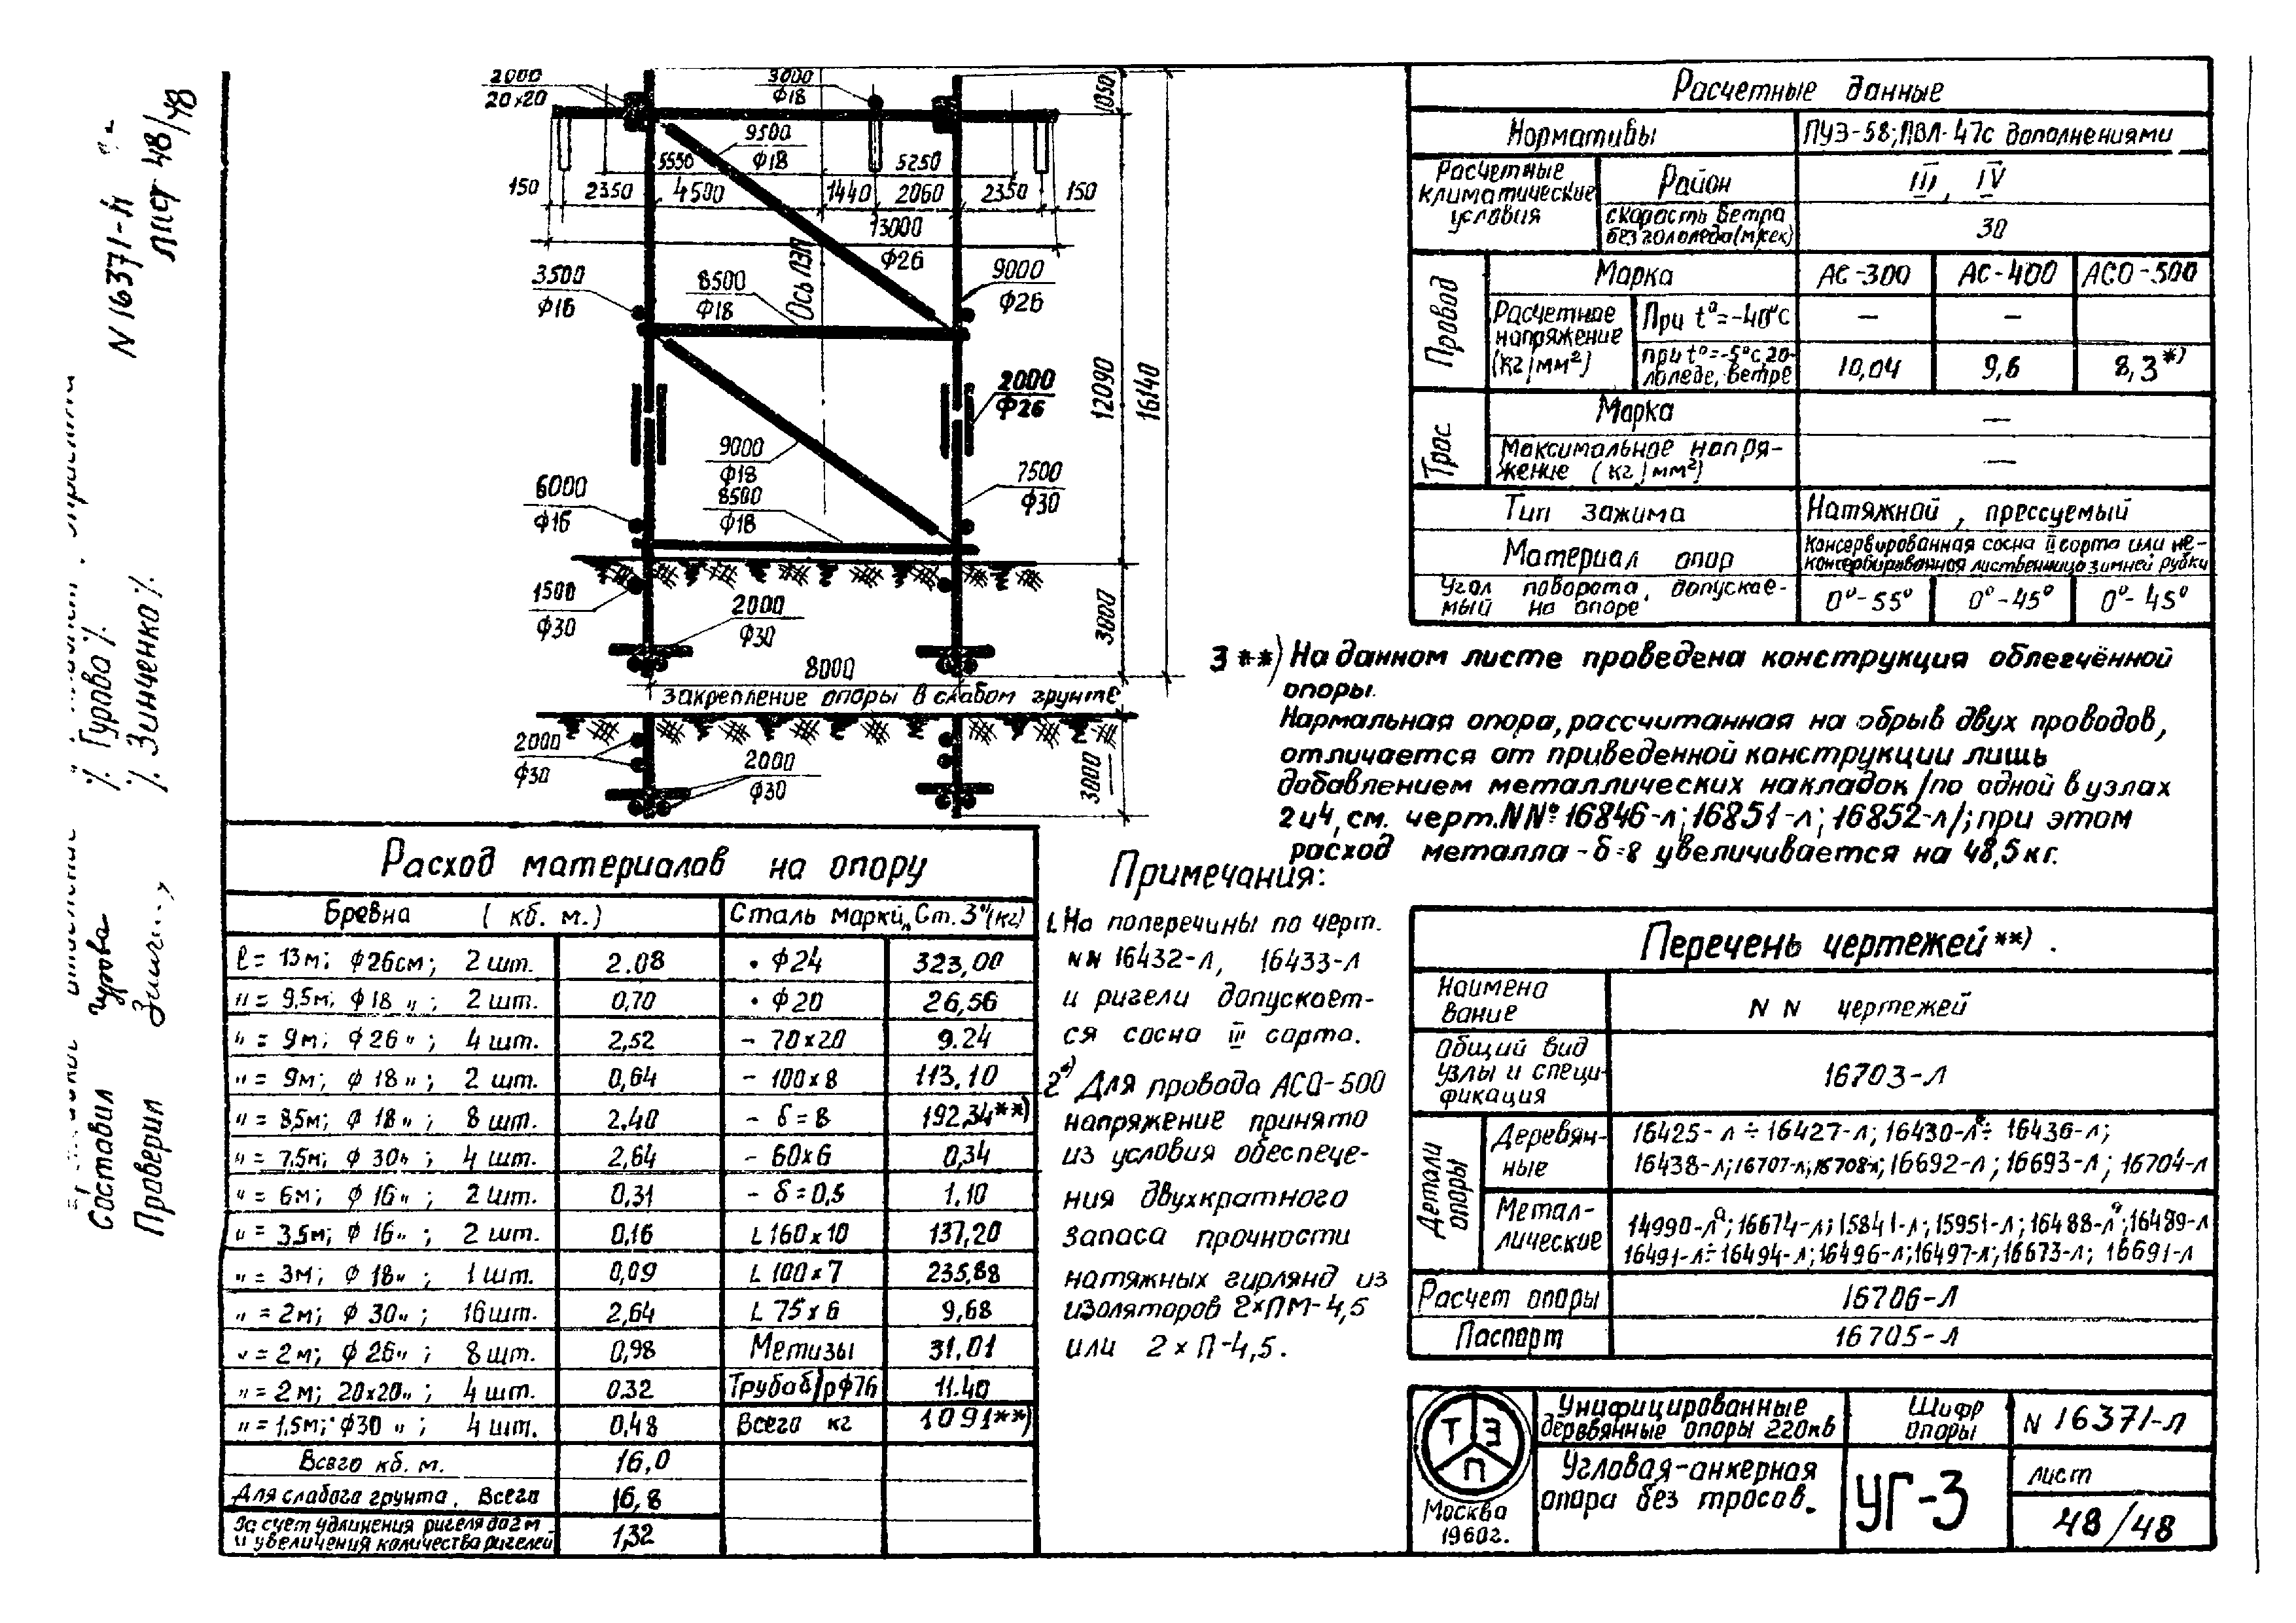 N 16371-л
лист 48/48
Составил Гурова /. Гурова /.
Проверил /. Зинченко /.
2000
20×20
3000
ф18
1050
9500
ф18
5550
5250
150
2350
4500
1440
2060
2350
150
13000
ф26
Ось ЛЭП
3500
ф16
8500
ф18
9000
ф26
2000
ф26
12090
16140
9000
ф18
8500
ф18
6000
ф16
7500
ф30
1500
ф30
2000
ф30
3000
8000
Закрепление опоры в слабом грунте
2000
ф30
2000
ф30
3000
Расчетные данные
Нормативы ПУЭ-58; ПВЛ-47с дополнениями
Расчетные климатические условия
Район III, IV
скорость ветра без гололеда (м/сек) 30
Провод
Марка АС-300 АС-400 АСО-500
Расчетное напряжение (кг/мм²)
При t°=-40°с — —
при t°=-5°с, гололеде, ветре 10,04 9,6 8,3*)
Трос
Марка —
Максимальное напряжение (кг/мм²) —
Тип зажима Натяжной, прессуемый
Материал опор Консервированная сосна II сорта или неконсервированная лиственница зимней рубки
Угол поворота, допускаемый на опоре 0°-55° 0°-45° 0°-45°
3**) На данном листе проведена конструкция облегчённой
опоры.
Нормальная опора, рассчитанная на обрыв двух проводов,
отличается от приведенной конструкции лишь
добавлением металлических накладок /по одной в узлах
2 и 4, см. черт. NN° 16846-л; 16851-л; 16852-л/; при этом
расход металла - δ=8 увеличивается на 48,5 кг.
Расход материалов на опору
Бревна (кб. м.) Сталь марки „Ст. 3" (кг)
ℓ = 13м; ф26см; 2 шт. 2.08 • ф24 323,00
" = 9,5м; ф18 "; 2 шт. 0,70 • ф20 26,56
" = 9м; ф26 "; 4 шт. 2,52 - 70×20 9.24
" = 9м; ф18 "; 2 шт. 0,64 - 100×8 113,10
" = 8,5м; ф18 "; 8 шт. 2.40 - δ=8 192,34**)
" = 7,5м; ф30 "; 4 шт. 2,64 - 60×6 0,34
" = 6м; ф16 "; 2 шт. 0,31 - δ=0,5 1.10
" = 3,5м; ф16 "; 2 шт. 0,16 L 160×10 137,20
" = 3м; ф18 "; 1 шт. 0,09 L 100×7 235,88
" = 2м; ф30 "; 16 шт. 2,64 L 75×6 9,68
" = 2м; ф26 "; 8 шт. 0,98 Метизы 31.01
" = 2м; 20×20 "; 4 шт. 0.32 Труба б/р ф76 11.40
" = 1,5м; ф30 "; 4 шт. 0,48 Всего кг 1091**)
Всего кб. м. 16,0
Для слабого грунта, всего 16,8
За счет удлинения ригеля до 2 м и увеличения количества ригелей 1,32
Примечания:
1. На поперечины по черт.
NN 16432-л, 16433-л
и ригели допускает-
ся сосна III сорта.
2*) Для провода АСО-500
напряжение принято
из условия обеспече-
ния двухкратного
запаса прочности
натяжных гирлянд из
изоляторов 2×ПМ-4,5
или 2×П-4,5.
Перечень чертежей**).
Наименование NN чертежей
Общий вид узлы и спецификация 16703-л
Детали опоры
Деревянные 16425-л ÷ 16427-л; 16430-лᵃ ÷ 16436-л;
16438-л; 16707-л; 16708-л; 16692-л; 16693-л; 16704-л
Металлические 14990-лᵃ; 16674-л; 15841-л; 15951-л; 16488-лᵃ; 16489-л
16491-л ÷ 16494-л; 16496-л; 16497-л; 16673-л; 16691-л
Расчет опоры 16706-л
Паспорт 16705-л
ТЭП
Москва
1960г.
Унифицированные
деревянные опоры 220кв
Шифр опоры
N 16371-л
Угловая-анкерная
опора без тросов.
УГ-3
лист
48/48